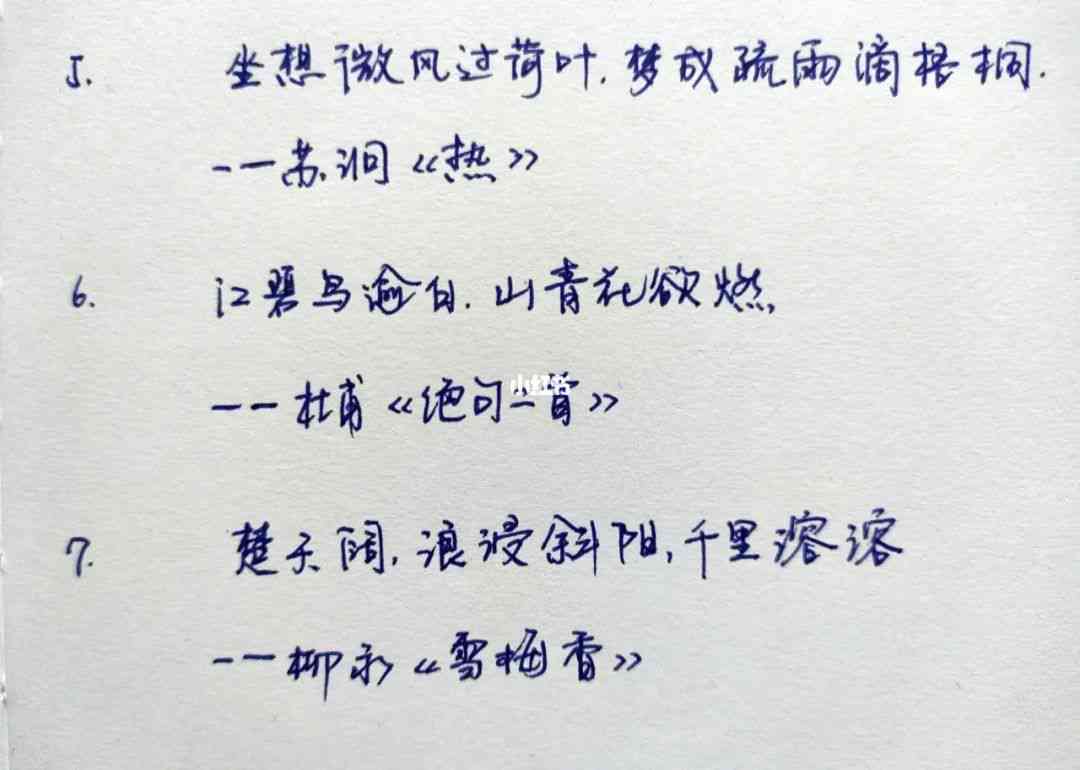 5. 坐想微风过荷叶,梦成疏雨滴梧桐.
--苏泂《热》
6. 江碧鸟逾白,山青花欲燃
小红书
--杜甫《绝句二首》
7. 楚天阔,浪浸斜阳,千里溶溶
--柳永《雪梅香》